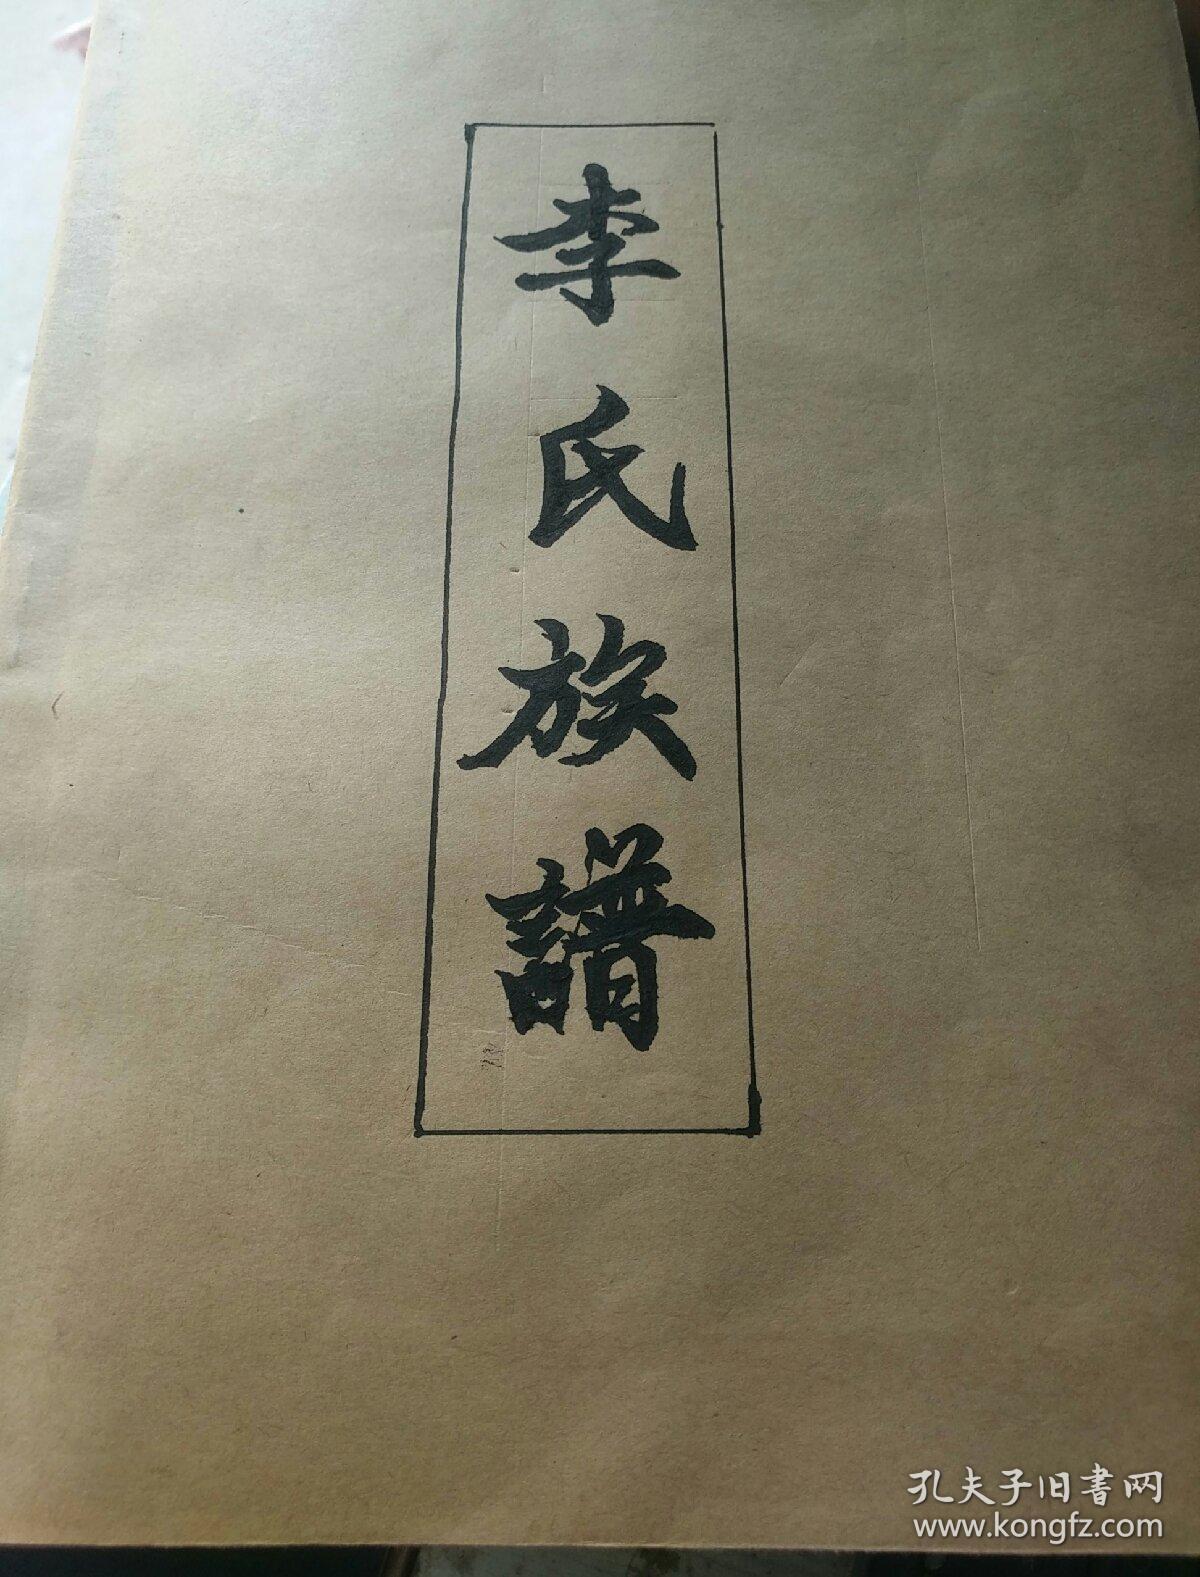 李氏族譜
孔夫子旧書网
www.kongfz.com